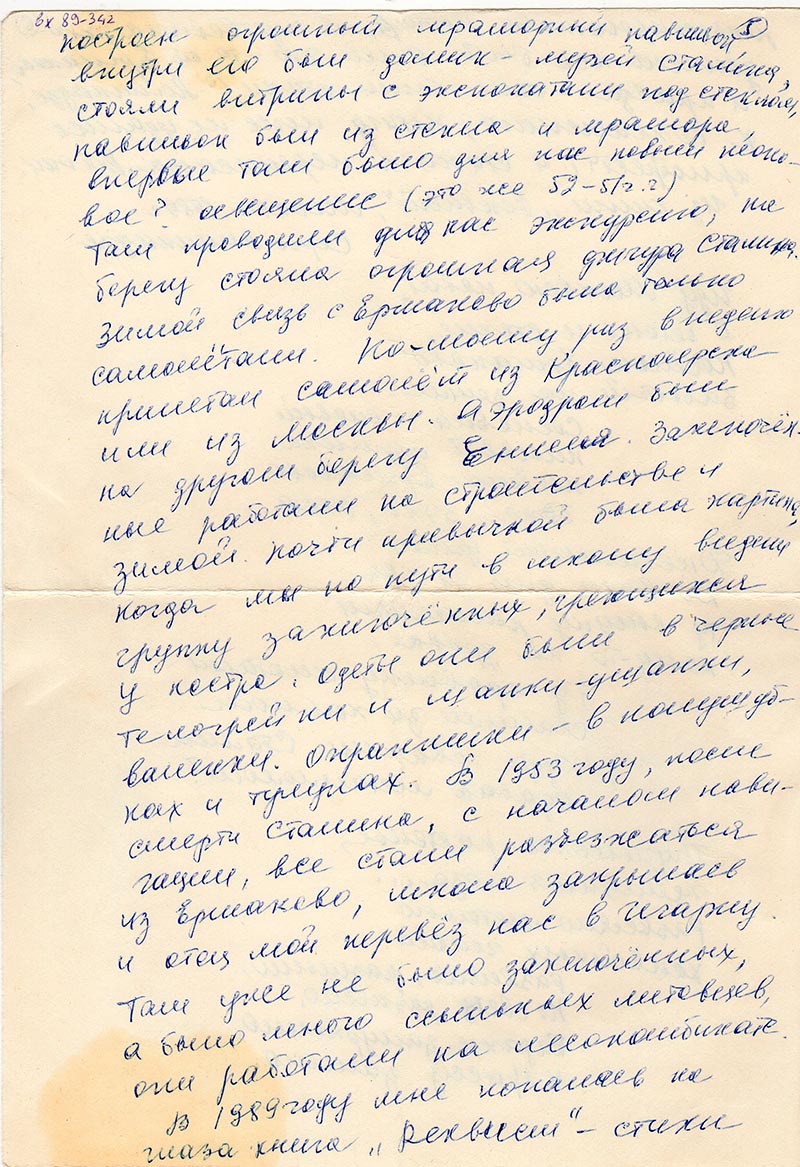 вх 89-342
5
построен огромный мраморный павильон
внутри его был домик-музей Сталина,
стояли витрины с экспонатами под стеклом,
павильон был из стекла и мрамора,
впервые там было для нас новым неоно-
вое? освещение (это же 52-51г.г)
Там проводили для нас экскурсию, на
берегу стояла огромная фигура Сталина.
Зимой связь с Ермаково была только
самолётами. По-моему раз в неделю
прилетал самолёт из Красноярска
или из Москвы. Аэродром был
на другом берегу Енисея. Заключён-
ные работали на строительстве и
зимой. Почти привычной была картина,
когда мы по пути в школу видели
группу заключённых, греющихся
у костра. Одеты они были в черные
телогрейки и шапки-ушанки,
валенки. Охранники – в полушуб-
ках и тулупах. В 1953 году, после
смерти Сталина, с началом нави-
гации, все стали разъезжаться
из Ермаково, школа закрылась
и отец мой перевёз нас в Игарку.
Там уже не было заключённых,
а было много ссыльных литовцев,
они работали на лесокомбинате.
В 1989 году мне попалась на
глаза книга „Реквием" – стихи